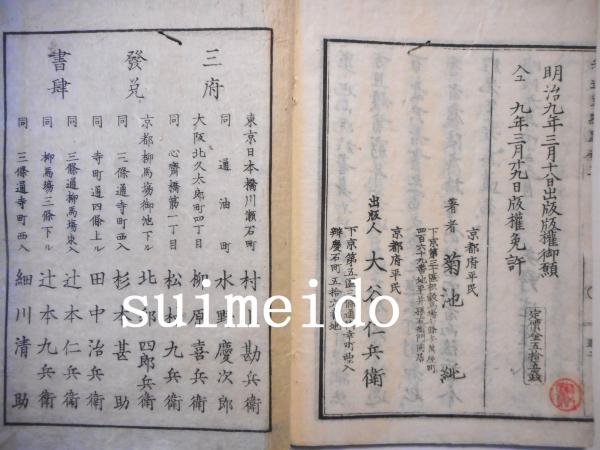 明治九年三月十八日出版版權御願
仝 九年三月十九日版權免許
定價金五拾五錢
京都府平民
著者 菊池 純
京都府平民
出版人 大谷仁兵衛
三府
發兌
書肆
東京日本橋川瀬石町 村上勘兵衛
同 通油町 水野慶次郎
大阪北久太郎町四丁目 柳原喜兵衛
同 心齋橋第一丁目 松村九兵衛
京都柳馬場御池下ル 北邨四郎兵衛
同 三條通寺町西入 杉本甚助
同 寺町通四條上ル 田中治兵衛
同 三條通柳馬場東入 辻本仁兵衛
同 柳馬塲三條下ル 辻本九兵衛
同 三條通寺町西入 細川清助
suimeido